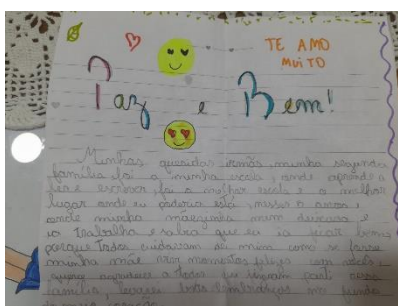 TE AMO
MUITO
Paz e Bem!
Minhas queridas irmãs, minha segunda
família foi a minha escola, onde aprendi a
ler e escrever, foi a melhor escola e o melhor
lugar onde eu poderia está,
onde minha mãezinha me deixava e
ia trabalha e sabia que eu ia ficar bem
porque todos cuidavam de mim como se fosse
minha mãe nos momentos felizes com vocês
quero agradecer a todos que fizeram parte nessa
família, levarei boas lembranças no fundo
do meu coração